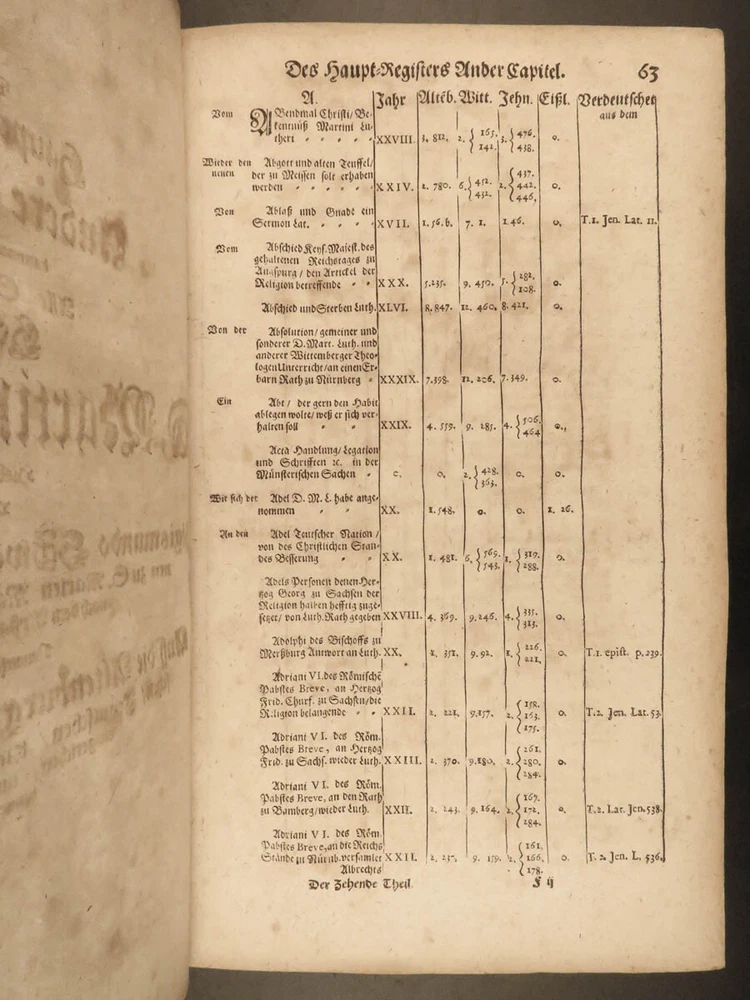 Des Haupt-Registers Ander Capitel. 63
A. Jahr Altēb. Witt. Jehn. Eißl. Verdeutschet
aus dem
Vom Abendmal Christi/ Be-
kentnüß Martini Lu-
thert XXVIII. 3. 812. 2. { 165. 142. 3. { 476. 438. 0.
Wieder den Abgott und alten Teuffel/
neuen der zu Meissen solt erhaben
werden XXIV. 2. 780. 6. { 452. 432. 2. { 437. 442. 446. 0.
Von Ablaß und Gnade ein
Sermon Lat. XVII. 1. 56. b. 7. 1. 1. 46. 0. T. 1. Jen. Lat. 11.
Vom Abschied Keys. Maiest. des
gehaltenen Reichstages zu
Augspurg/ den Artickel der
Religion betreffende XXX. 5. 235. 9. 450. 5. { 282. 108. 0.
Abschied und Sterben Luth. XLVI. 8. 847. 12. 460. 8. 421. 0.
Von der Absolution/ gemeiner und
sonderer D. Mart. Luth. und
anderer Wittemberger Theo-
logen Unterricht/ an einen Er-
barn Rath zu Nürnberg XXXIX. 7. 398. 12. 206. 7. 349. 0.
Ein Abt/ der gern den Habit
ablegen wolte/ weß er sich ver-
halten soll XXIX. 4. 559. 9. 285. 4. { 506. 464 0.
Acta Handlung/ Legation
und Schrifften ꝛc. in der
Münsterischen Sachen c. 0. 2. { 428. 363. 0. 0.
Wie sich der Adel D. M. L. habe ange-
nommen XX. 1. 548. 0. 0. 1. 26.
An den Adel Teutscher Nation/
von des Christlichen Stan-
des Besserung XX. 1. 481. 6. { 569. 543. 1. { 319. 288. 0.
Adels Personen denen Her-
tzog Georg zu Sachsen der
Religion halben hefftig zuge-
setzet/ von Luth. Rath gegeben XXVIII. 4. 369. 9. 246. 4. { 335. 313. 0.
Adolphi des Bischoffs zu
Merßburg Antwort an Luth. XX. 1. 351. 9. 92. 1. { 226. 221. 0. T. 1. epist. p. 239.
Adriani VI. des Römische
Pabstes Breve, an Hertzog
Frid. Churf. zu Sachsen/ die
Religion belangende XXII. 2. 221. 9. 157. 2. { 158. 163. 175. 0. T. 2. Jen. Lat. 53.
Adriani VI. des Röm.
Pabstes Breve, an Hertzog
Frid. zu Sachs. wieder Luth. XXIII. 2. 370. 9. 180. 2. { 261. 280. 284. 0.
Adriani VI. des Röm.
Pabstes Breve, an den Rath
zu Bamberg/ wieder Luth. XXII. 2. 243. 9. 164. 2. { 167. 172. 284. 0. T. 2. Lat. Jen. 538.
Adriani VI. des Röm.
Pabstes Breve, an die Reichs
Stände zu Nürnb. versamlet XXII. 2. 237. 9. 159. 2. { 161. 166. 178. 0. T. 2. Jen. L. 536.
Albrechts
Der Zehende Theil. F ij